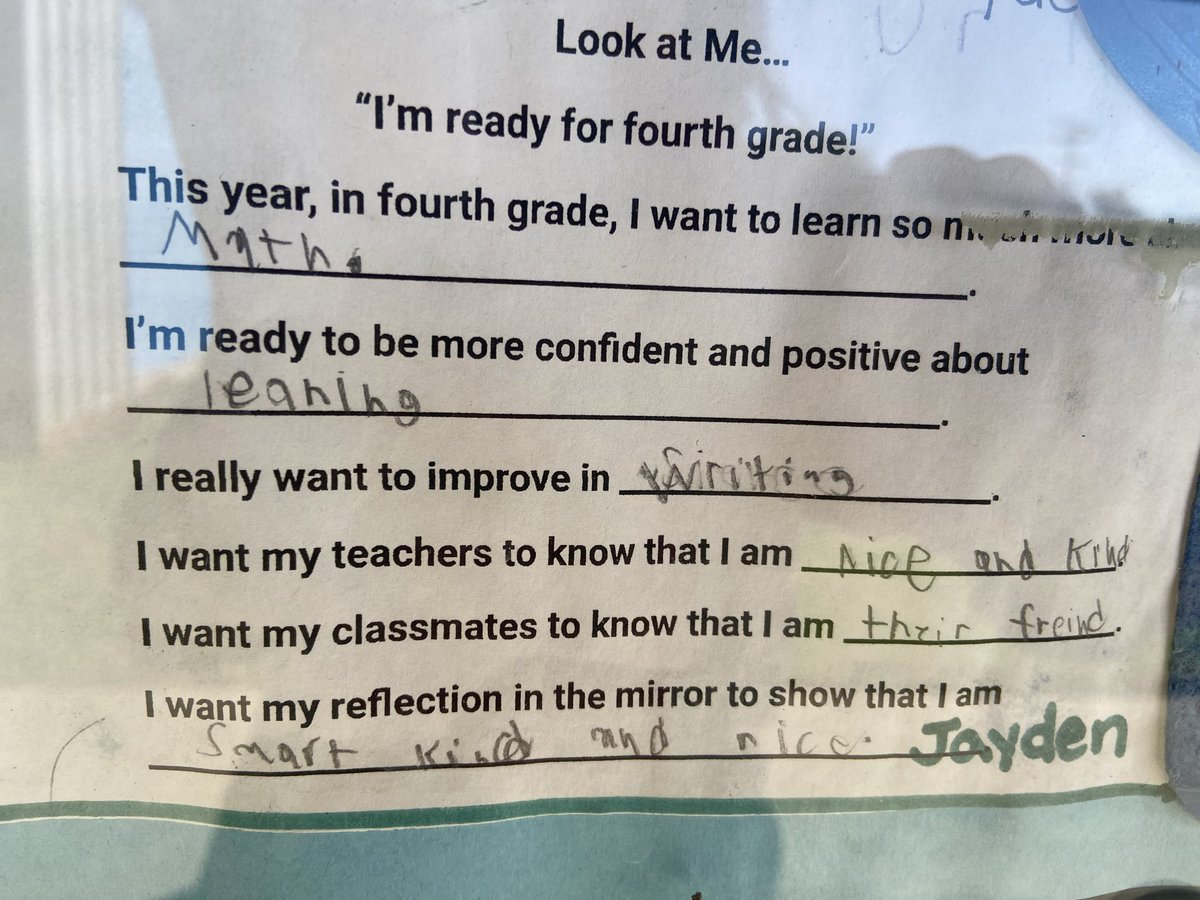 Look at Me...
"I'm ready for fourth grade!"
This year, in fourth grade, I want to learn so
Math.
I'm ready to be more confident and positive about
leaning
I really want to improve in writing.
I want my teachers to know that I am Nice and Kind
I want my classmates to know that I am their freind.
I want my reflection in the mirror to show that I am
Smart Kind and nice. Jayden